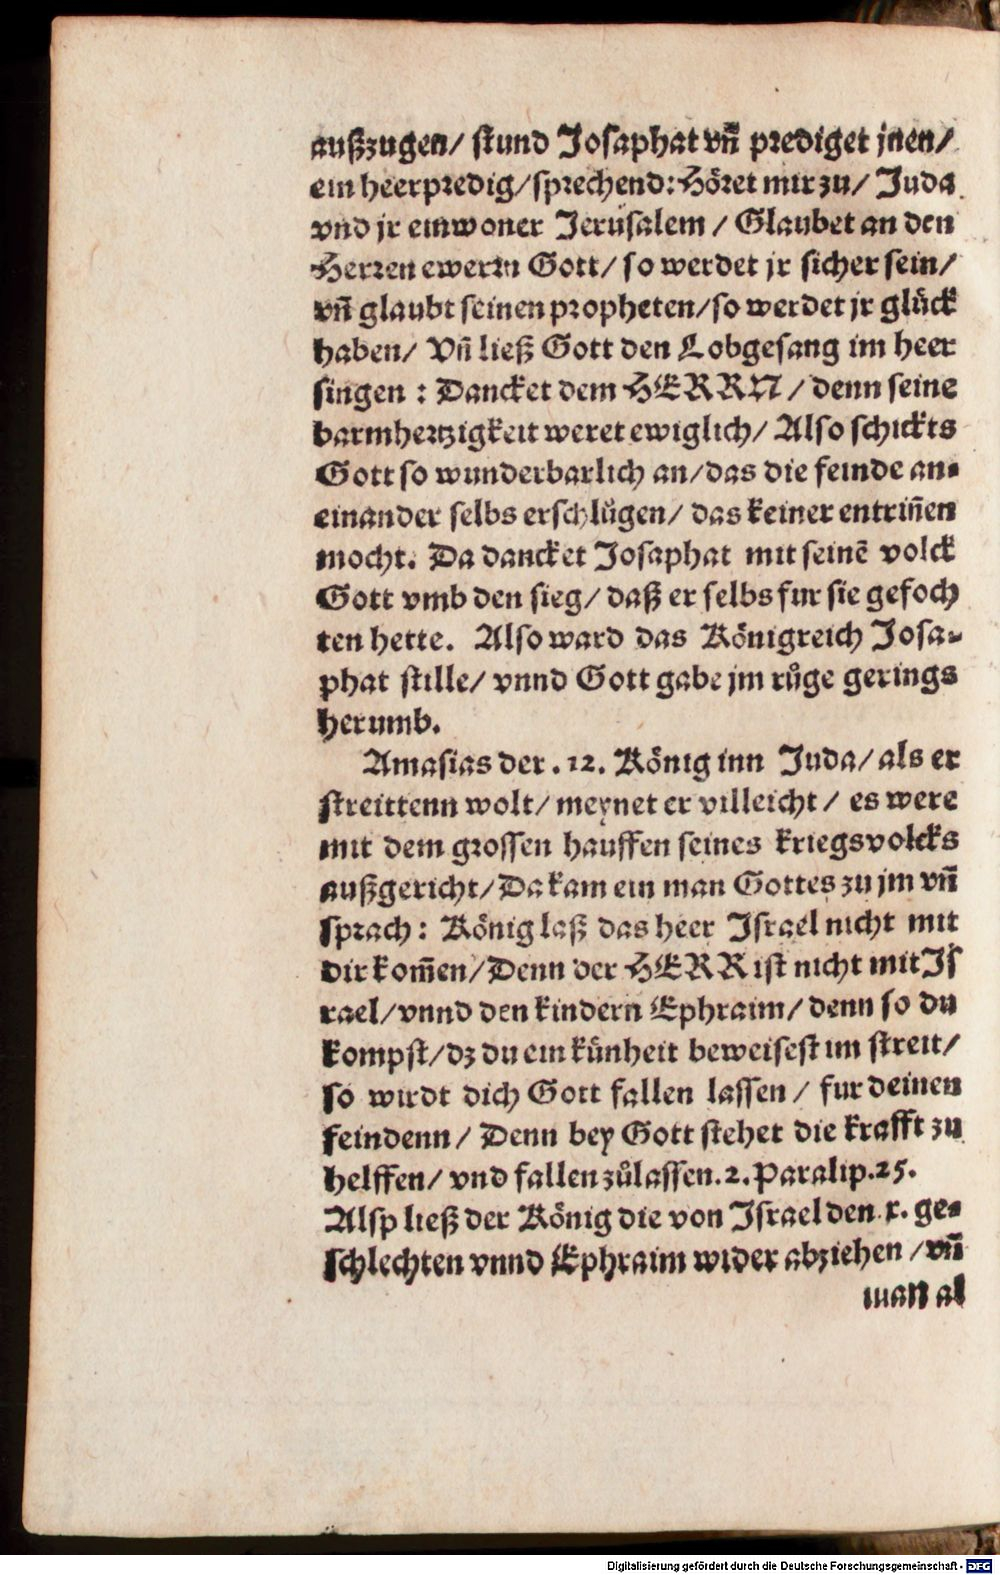 außzugen/ stund Josaphat vn̄ prediget jnen/
ein heerpredig/ sprechend: Höret mir zu/ Juda
vnd jr einwoner Jerusalem / Glaubet an den
Herren ewern Gott/ so werdet jr sicher sein/
vn̄ glaubt seinen propheten/so werdet jr glück
haben/ Vn̄ ließ Gott den Lobgesang im heer
singen : Dancket dem HERRN / denn seine
barmhertzigkeit weret ewiglich/ Also schickts
Gott so wunderbarlich an/das die feinde an-
einander selbs erschlůgen/ das keiner entrin̄en
mocht. Da dancket Josaphat mit seinē volck
Gott vmb den sieg/ daß er selbs fur sie gefoch
ten hette. Also ward das Königreich Josa-
phat stille/ vnnd Gott gabe jm růge gerings
herumb.
Amasias der .12. König inn Juda/ als er
streittenn wolt/ meynet er villeicht / es were
mit dem grossen hauffen seines kriegsvolcks
außgericht/ Da kam ein man Gottes zu jm vn̄
sprach: König laß das heer Israel nicht mit
dir kom̄en/ Denn der HERR ist nicht mit Is
rael/vnnd den kindern Ephraim/ denn so du
kompst/dz du ein künheit beweisest im streit/
so wirdt dich Gott fallen lassen / fur deinen
feindenn/ Denn bey Gott stehet die krafft zu
helffen/ vnd fallen zůlassen.2.Paralip.25.
Alsp ließ der König die von Israel den x. ge-
schlechten vnnd Ephraim wider abziehen /vn̄
man al
Digitalisierung gefördert durch die Deutsche Forschungsgemeinschaft - DFG